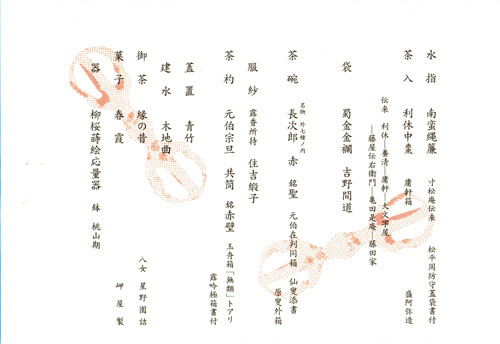 水指　南蛮縄簾　寸松庵伝来　松平周防守蓋袋書付
茶入　利休中棗　庸軒箱　盛阿弥造
伝来　利休―養清―庸軒―大文字屋
―藤屋伝右衛門―亀田是庵―藤田家
袋　蜀金金襴　吉野間道
名物　外七種ノ内
茶碗　長次郎　赤　銘聖　元伯在判同箱　仙叟添書
原叟外箱
服紗　露香所持　住吉緞子
茶杓　元伯宗旦　共筒　銘赤壁　玉舟箱「無類」トアリ
露吟極箱書付
蓋置　青竹
建水　木地曲
御茶　縁の昔　八女　星野園詰
菓子　春霞　岬屋製
器　柳桜蒔絵応量器　鉢　桃山期